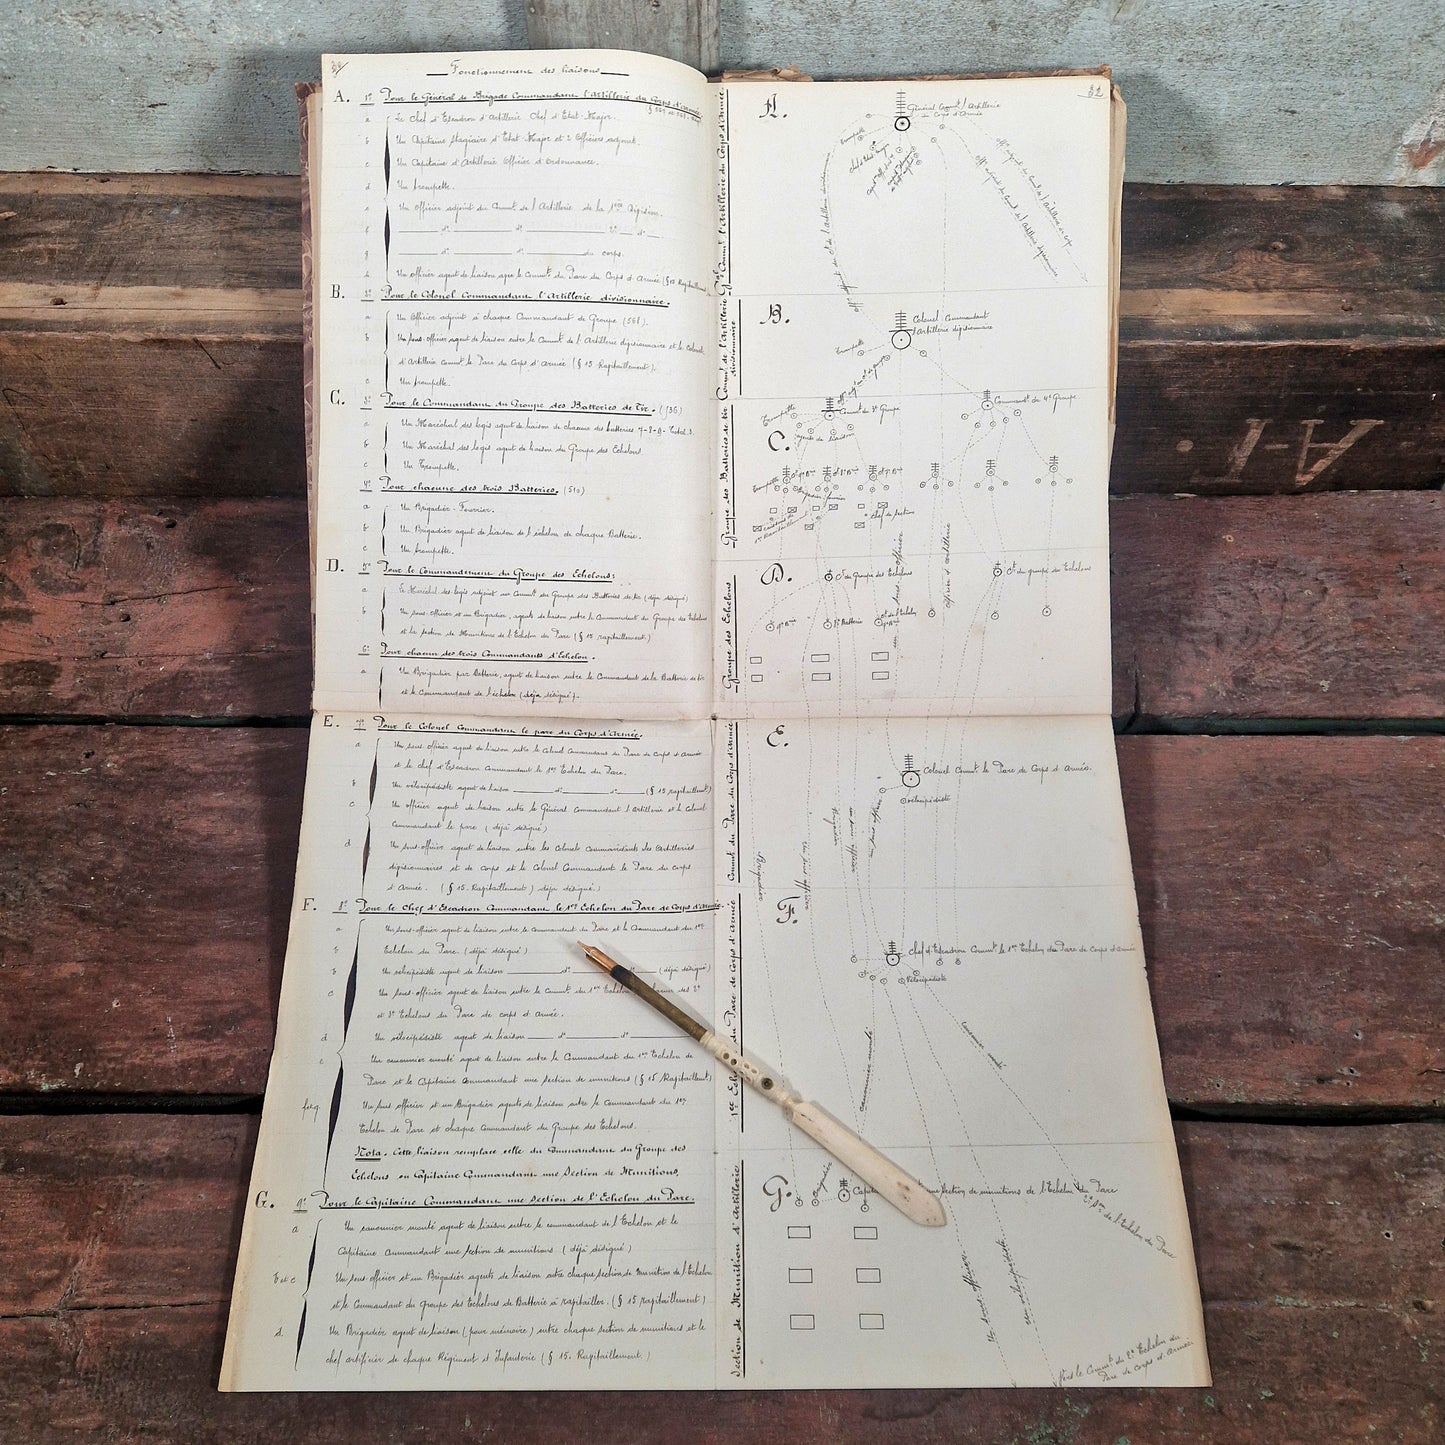 Fonctionnement des liaisons
A. 1º Pour le Général de Brigade Commandant l'Artillerie du Corps d'Armée
a Le Chef d'Escadron d'Artillerie Chef d'Etat-Major.
b Un Capitaine Stagiaire d'Etat-Major et 2 Officiers adjoint.
c Un Capitaine d'Artillerie Officier d'Ordonnance.
d Un trompette.
e Un Officier adjoint du Commt de l'Artillerie de la 1ère Division.
f dº dº 2e dº
g dº dº du corps.
h Un officier agent de liaison avec le Commt du Parc du Corps d'Armée (§ 15 Rapitaillement
B. 2º Pour le Colonel Commandant l'Artillerie divisionnaire.
a Un Officier adjoint à chaque Commandant de Groupe (561).
b Un sous-officier agent de liaison entre le Commt de l'Artillerie divisionnaire et le Colonel
d'Artillerie commt le Parc du Corps d'Armée (§ 15 Rapitaillement).
c Un trompette.
C. 3º Pour le Commandant du Groupe des Batteries de Tir. (536)
a Un Maréchal des logis agent de liaison de chacune des batteries 7-8-9. Total 3.
b Un Maréchal des logis agent de liaison du Groupe des Echelons
c Un Trompette.
4º Pour chacune des trois Batteries. (510)
a Un Brigadier-Fourrier.
b Un Brigadier agent de liaison de l'échelon de chaque Batterie.
c Un trompette.
D. 5º Pour le Commandement du Groupe des Echelons:
a Le Maréchal des logis adjoint au Commt du Groupe des Batteries de tir (déja désigné)
b Un sous-officier et un Brigadier, agents de liaison entre le Commandant du Groupe des Echelons
et la section de Munitions de l'Echelon du Parc (§ 15 rapitaillement.)
6º Pour chacun des trois Commandants d'Echelon.
a Un Brigadier par Batterie, agent de liaison entre le Commandant de la Batterie de tir
et le Commandant de l'échelon (déja désigné).
E. 7º Pour le Colonel Commandant le parc du Corps d'Armée.
a Un sous-officier agent de liaison entre le Colonel Commandant du Parc de Corps d'Armée
et le Chef d'Escadron Commandant le 1er Echelon du Parc.
b Un vélocipédiste agent de liaison dº dº (§ 15 rapitaillemt)
c Un officier agent de liaison entre le Général Commandant l'Artillerie et le Colonel
Commandant le parc (déjà désigné)
d Un sous-officier agent de liaison entre les Colonels Commandants les Artilleries
divisionnaires et de corps et le Colonel Commandant le Parc du Corps
d'Armée. (§ 15. Rapitaillement) déja désigné.)
F. 8º Pour le Chef d'Escadron Commandant le 1er Echelon du Parc de Corps d'Armée.
a Un sous-officier agent de liaison entre le Commandant du Parc et le Commandant du 1er
Echelon du Parc. (déjà désigné)
b Un vélocipédiste agent de liaison dº dº (déjà désigné)
c Un sous-officier agent de liaison entre le Commt du 1er des 2e
et 3e Echelons du Parc de corps d'Armée.
d Un vélocipédiste agent de liaison dº dº
e Un canonnier monté agent de liaison entre le Commandant du 1er Echelon de
Parc et le Capitaine Commandant une section de munitions (§ 15 Rapitaillemt)
f et g Un sous officier et un Brigadier agents de liaison entre le Commandant du 1er
Echelon de Parc et chaque Commandant du Groupe des Echelons.
Nota. Cette liaison remplace celle du Commandant du Groupe des
Echelons au Capitaine Commandant une Section de Munitions.
G. 9º Pour le Capitaine Commandant une section de l'Echelon du Parc.
a Un canonnier monté agent de liaison entre le commandant de l'Echelon et le
Capitaine commandant une section de munitions (déjà désigné)
b et c Un sous-officier et un Brigadier agents de liaison entre chaque section de munition de l'Echelon
et le Commandant du groupe des Echelons de Batterie à rapitailler. (§ 15 rapitaillement)
d Un Brigadier agent de liaison (pour mémoire) entre chaque section de munitions et le
chef artificier de chaque Régiment d'Infanterie (§ 15. Rapitaillement)
32
Gal Commt l'Artillerie du Corps d'Armée
A.
Général Commt l'Artillerie
du Corps d'Armée
trompette
Commt de l'Artillerie divisionnaire
B.
Colonel Commandant
l'Artillerie divisionnaire
Trompette
Groupe des Batteries de tir
Trompette
Commt du 3e Groupe
Commandt du 4e Groupe
C.
agents de liaison
Trompette
chef de section
Groupe des Echelons
D.
Ct du groupe des Echelons
Ct du groupe des Echelons
8e Batterie
un sous-officier
Commt du Parc du Corps d'Armée
E.
Colonel Commt le Parc de Corps d'Armée.
vélocipédiste
Brigadier
un sous officier
1er Echelon du Parc de Corps d'Armée
F.
Chef d'Escadron Commt le 1er Echelon du Parc de Corps d'Armée
Vélocipédiste
canonnier monté
canonnier monté
Section de Munition d'Artillerie
G.
brigadier
une section de munitions de l'Echelon du Parc
de l'Echelon du Parc
Un sous-officier
un vélocipédiste
Vers le Commt du 2e Echelon du
Parc de corps d'Armée
A-1